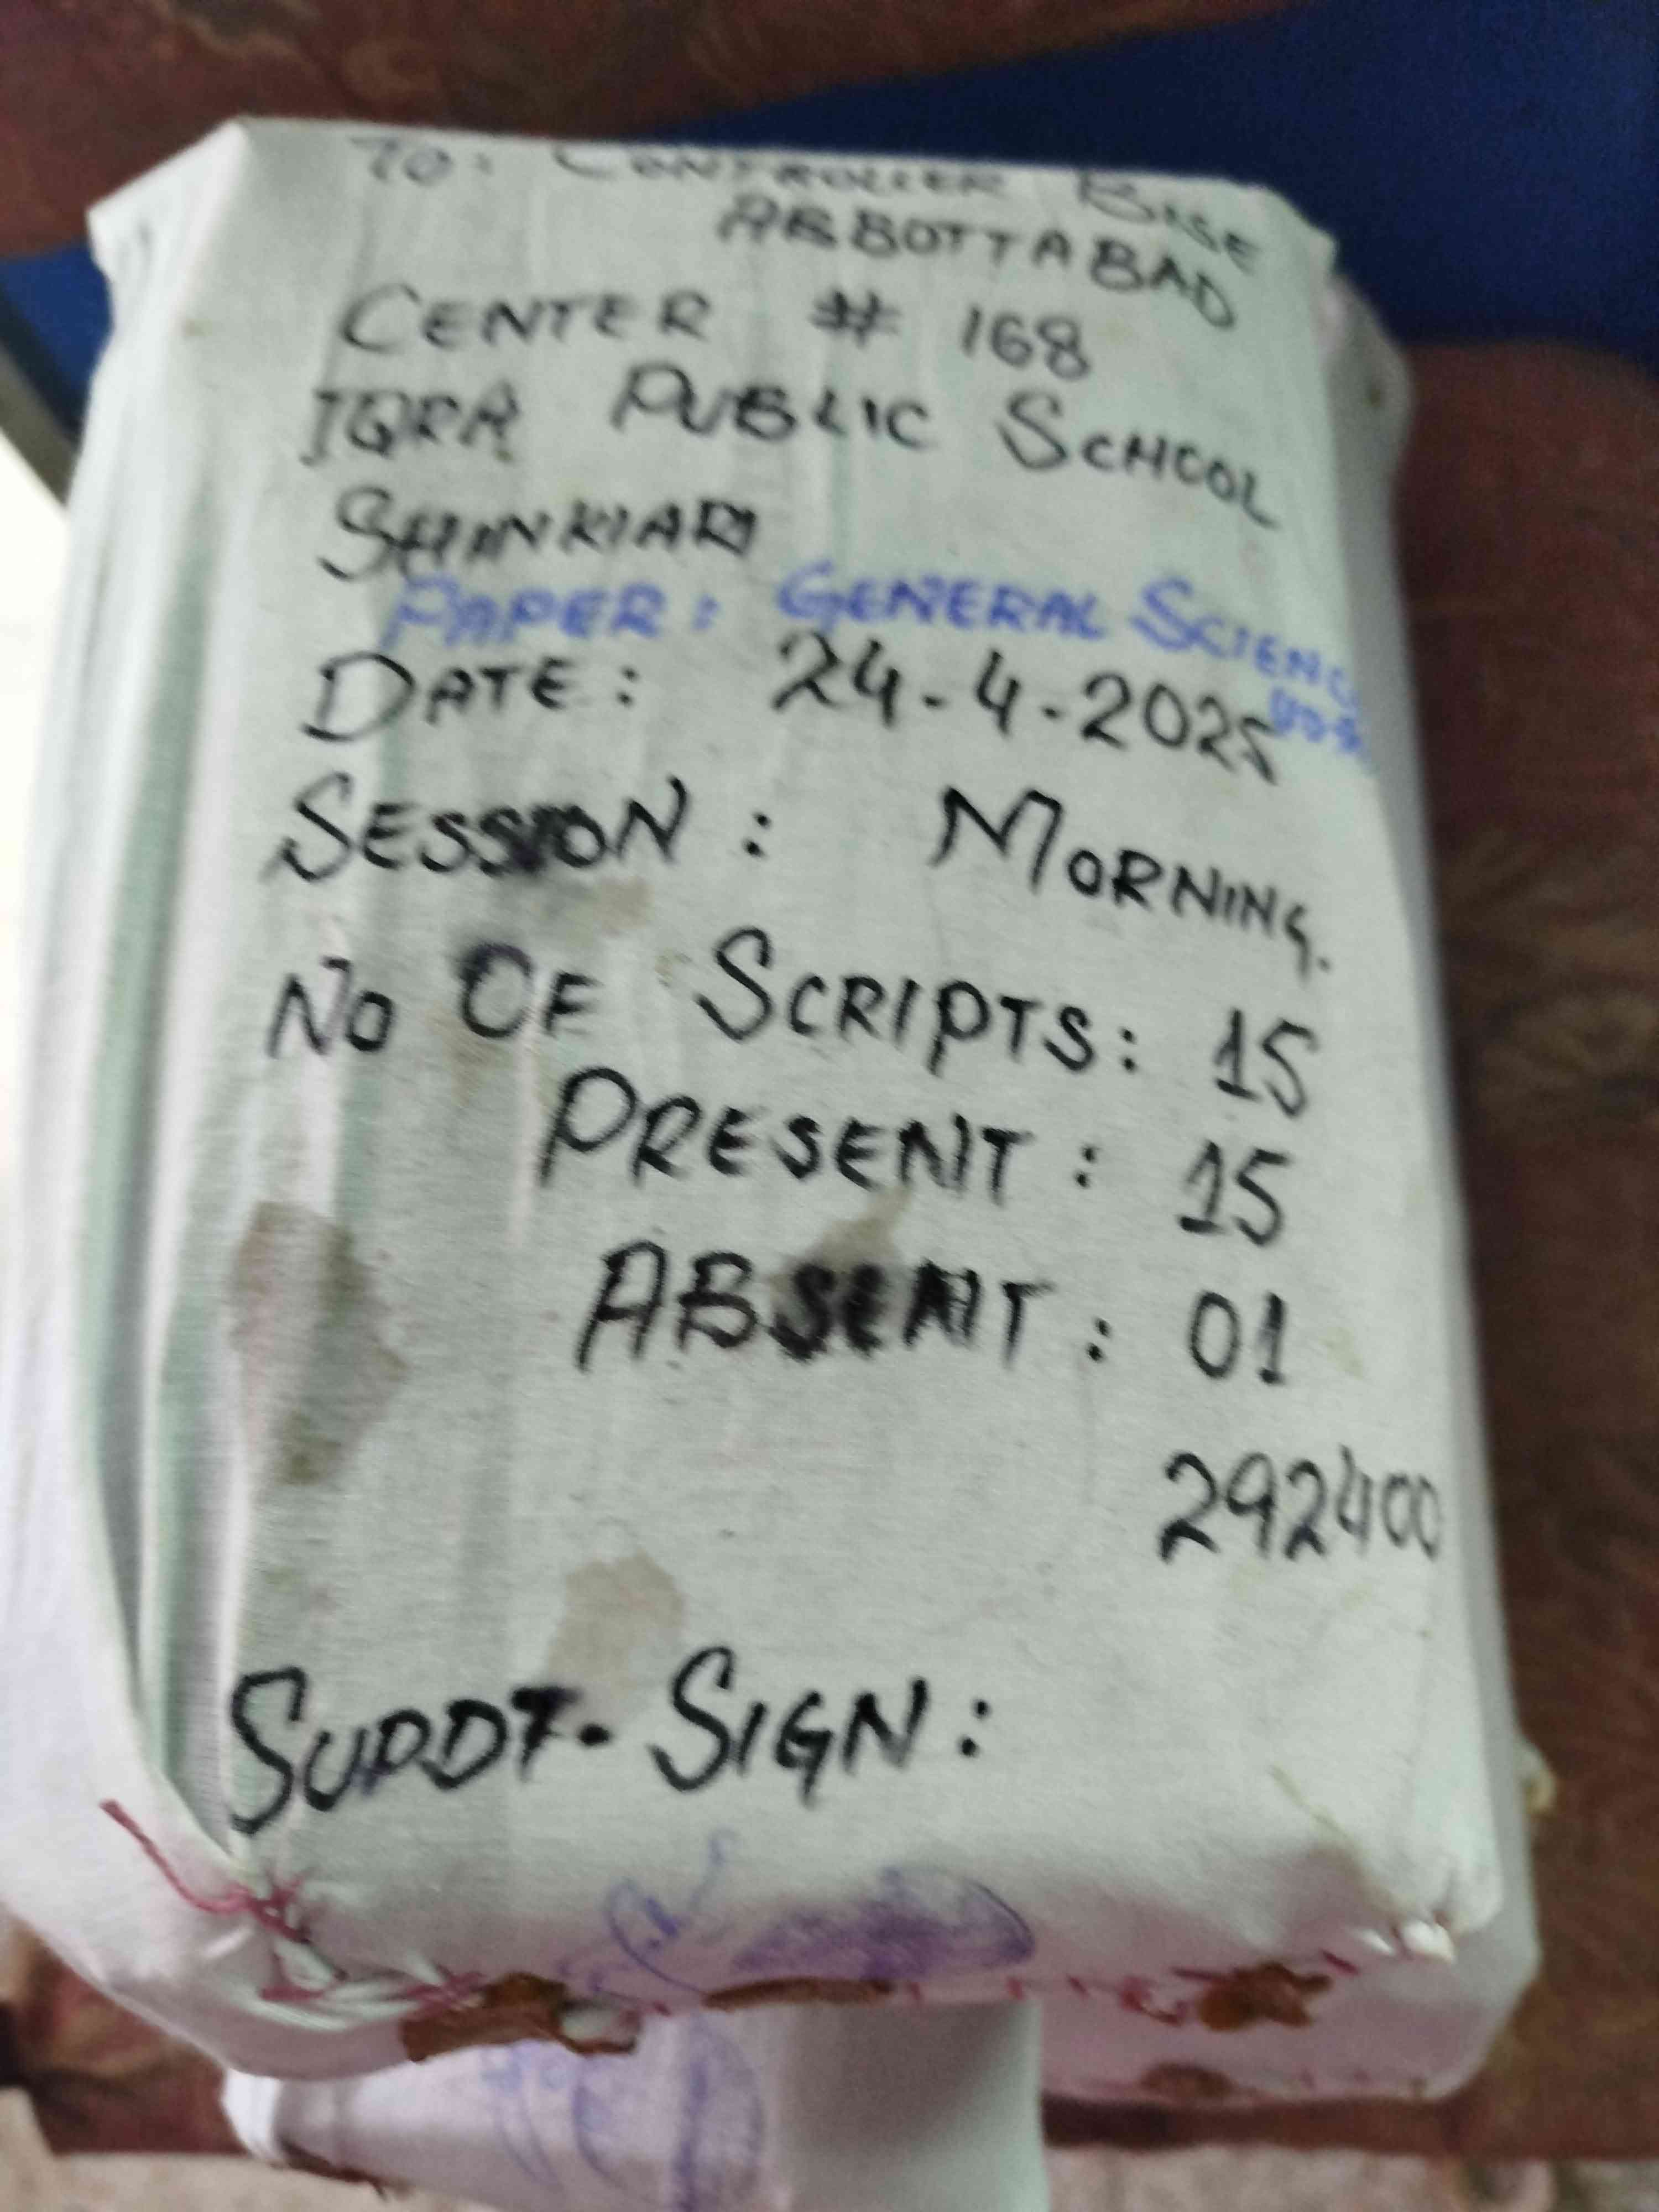 TO: CONTROLLER BISE
ABBOTTABAD
CENTER # 168
IQRA PUBLIC SCHOOL
SHINKIARI
PAPER: GENERAL SCIENCE
DATE: 24-4-2025
SESSION: MORNING.
NO OF SCRIPTS: 15
PRESENT: 15
ABSENT: 01
292400
SUPDT. SIGN: